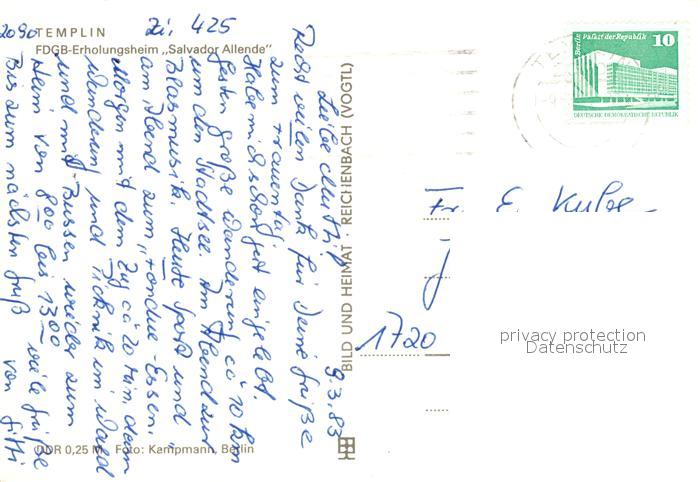 2090 TEMPLIN Zi. 425
FDGB-Erholungsheim „Salvador Allende"
9.3.83
Liebe
Recht vielen Dank für Deine Grüße
zum Frauentag.
Habe mich schon gut eingelebt.
große Wanderung ca 10 km
um den Stadtsee. Am Abend zur
Blasmusik. Heute Sport und
am Abend zum „Fondue-Essen.
Morgen mit dem Zug ca 20 min dann
Wandern und Picknick im Wald
und mit Bussen wieder zum
Heim von 800 bis 1300 viele Grüße
Bis zum nächsten Gruß von Gitti
DDR 0,25 M Foto: Kampmann, Berlin
BILD UND HEIMAT REICHENBACH (VOGTL)
Berlin Palast der Republik
10
DEUTSCHE DEMOKRATISCHE REPUBLIK
Fr. E. Kulse
1720
privacy protection
Datenschutz